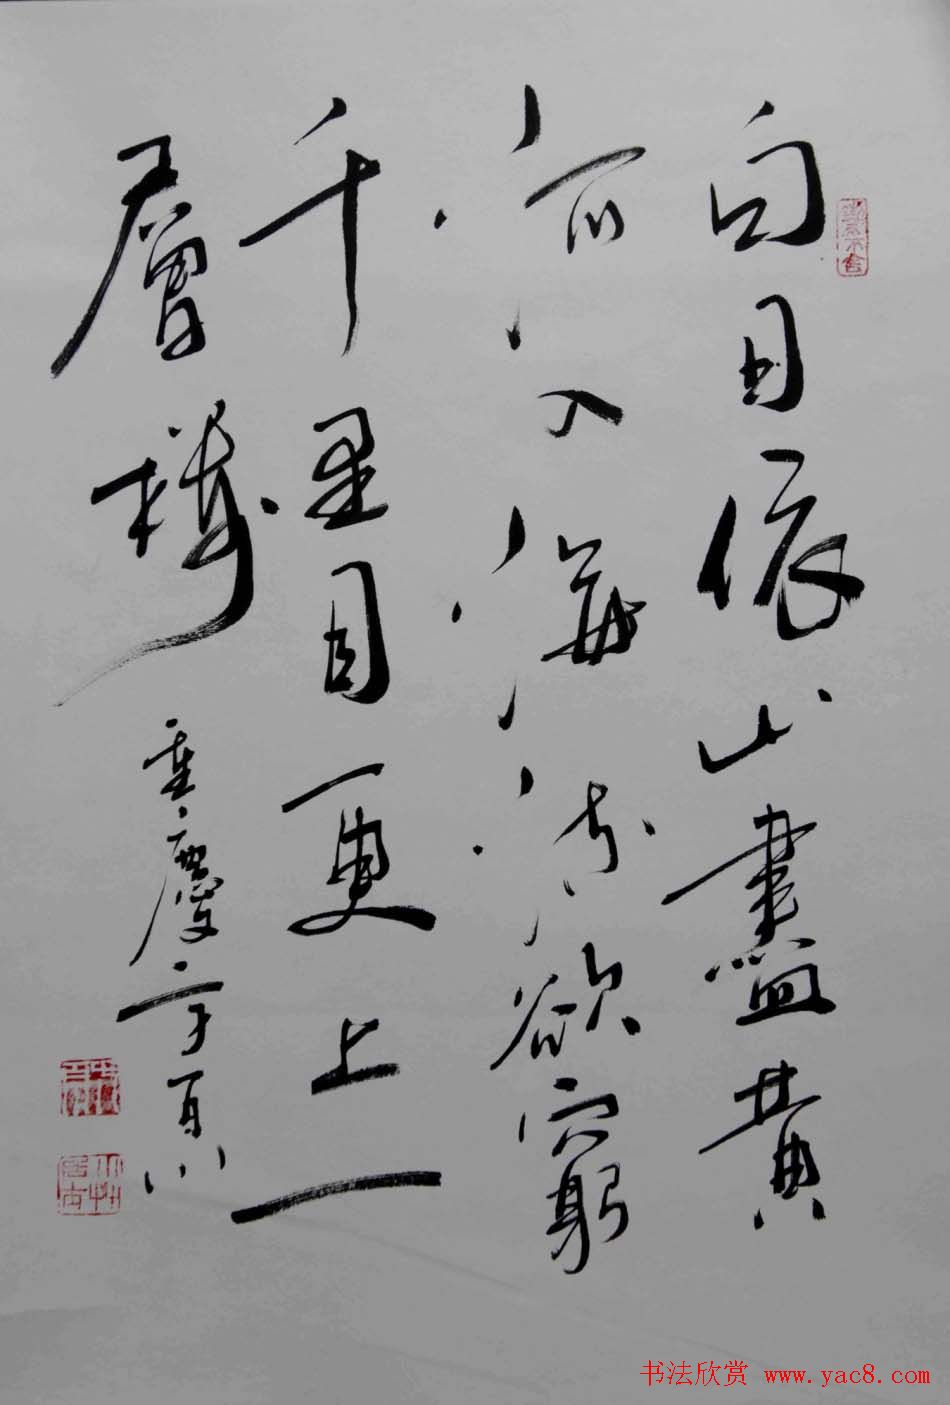 白日依山盡黄
河入海流欲窮
千里目更上一
層樓
重慶百川
书法欣赏 www.yac8.com